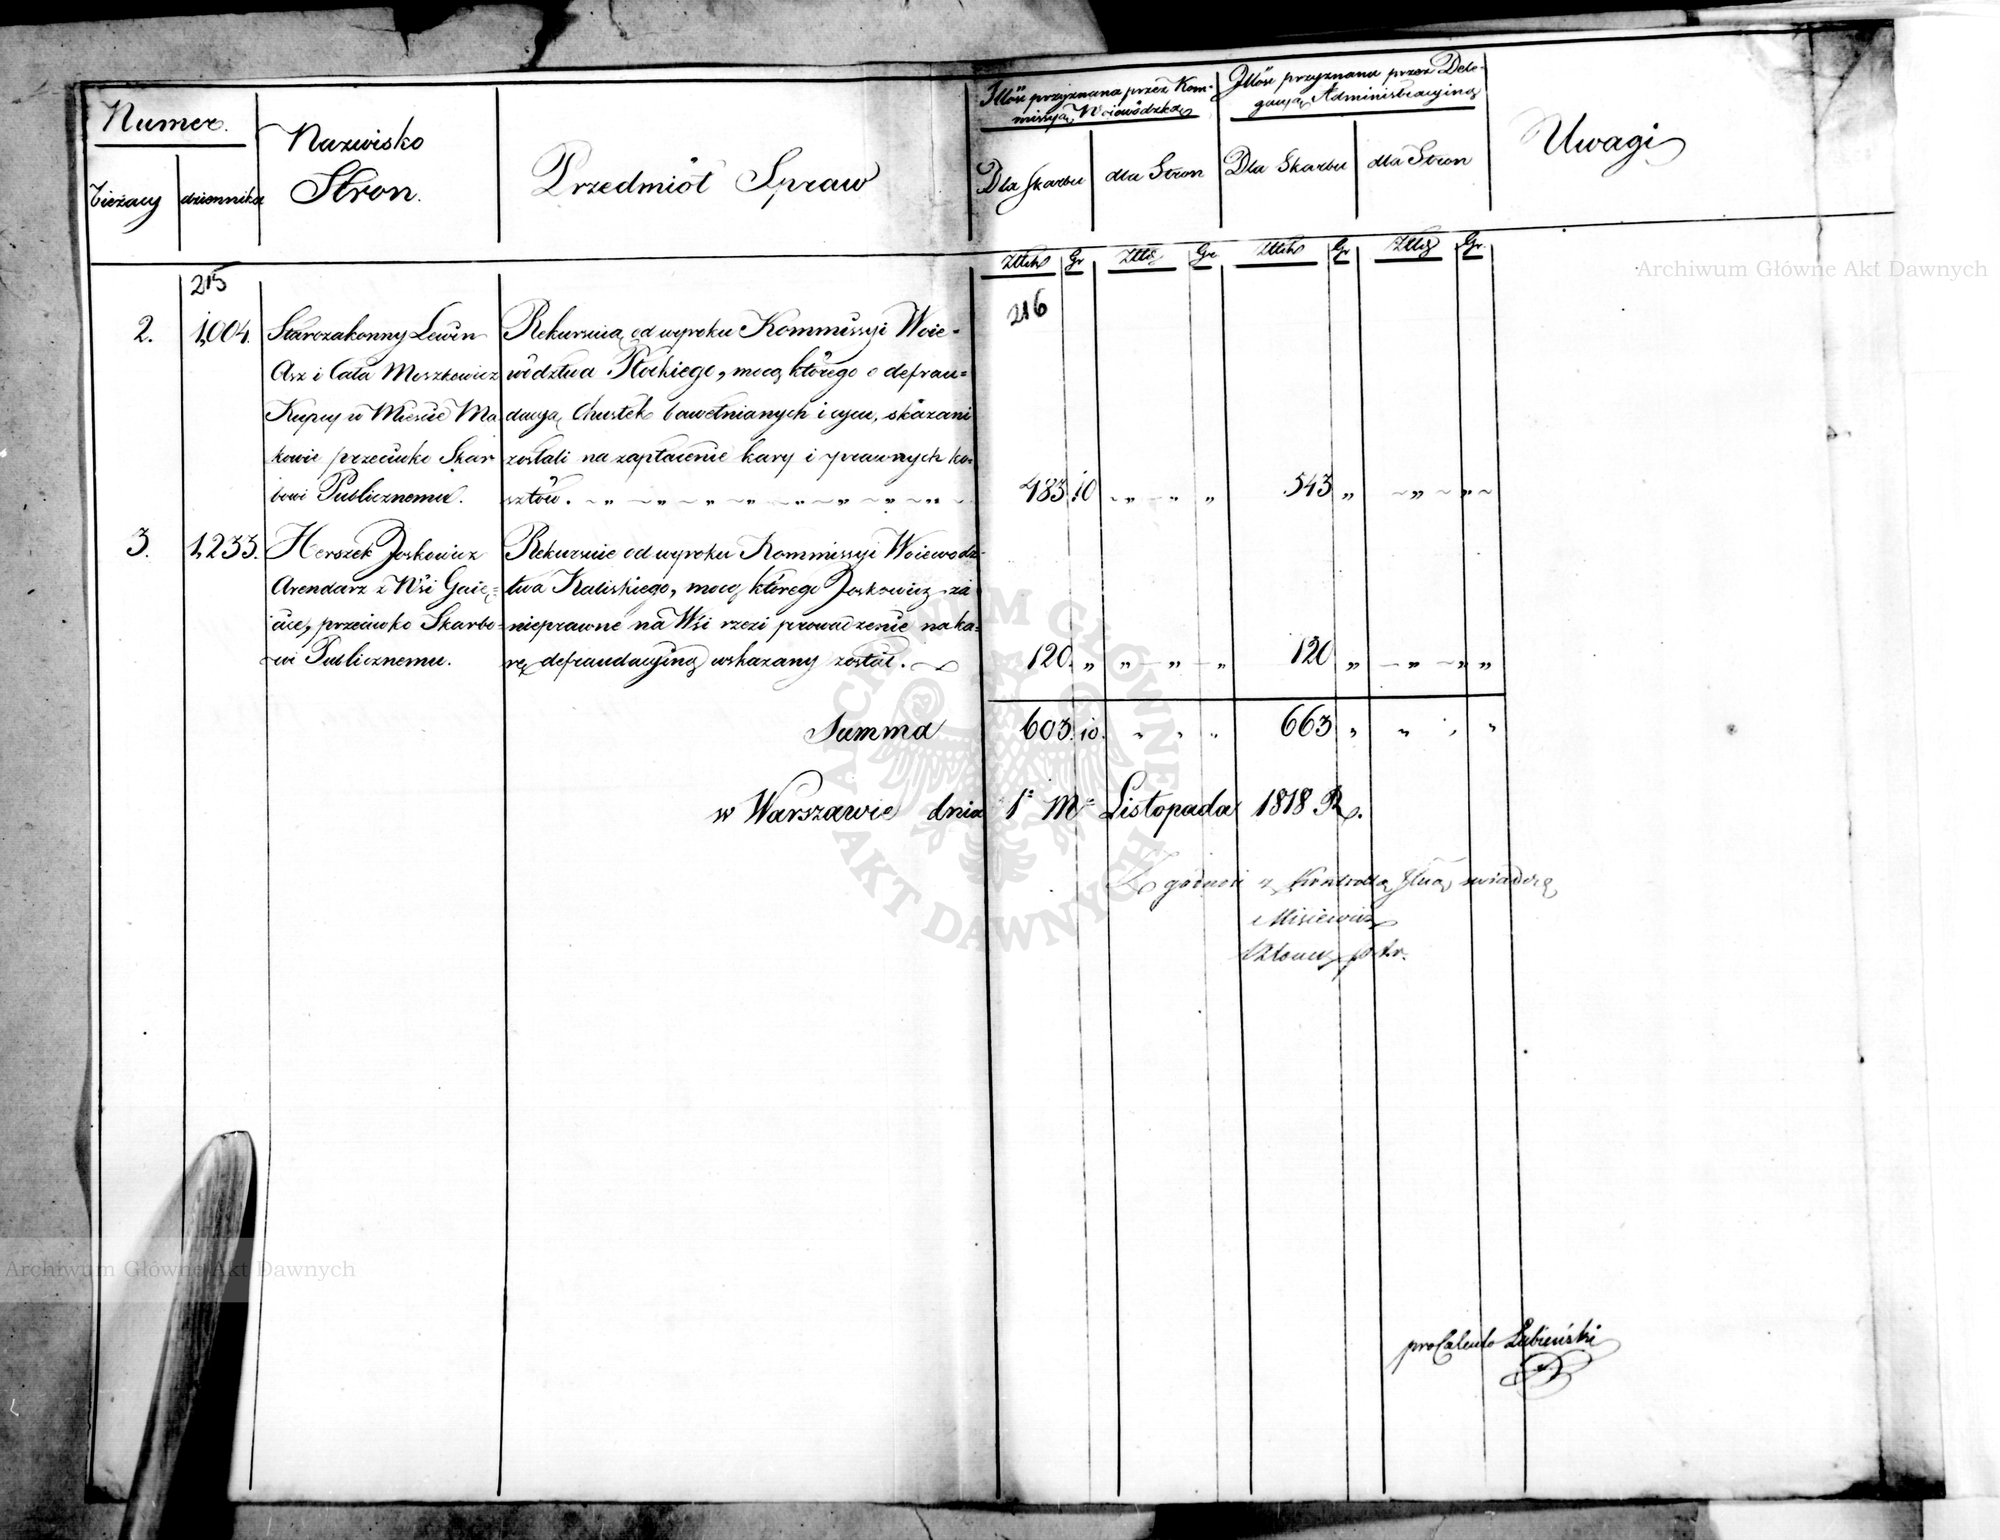 Numer.
Bieżący
dziennika
Nazwisko
Stron.
Przedmiot Spraw
Illość przyznana przez Kom-
missyą Woiewódzką
Dla Skarbu
dla Stron
Illość przyznana przez Dele-
gacyą Administracyiną
Dla Skarbu
dla Stron
Uwagi
Złtch Gr Złtch Gr Złtch Gr Złtch Gr
215
216
2. 1,004. Starozakonny Lewin
Asz i Cała Moszkewicz
Kupcy w Mieście Ma
kowie przeciwko Skar
bowi Publicznemu.
Rekursuią od wyroku Kommissyi Woie-
wództwa Płockiego, mocą którego o defrau-
dacyą Chustek bawełnianych i cycu, skazani
zostali na zapłacenie kary i prawnych ko-
sztów. 483 10 543
3. 1,233. Herszek Joskowicz
Arendarz z Wsi
przeciwko Skarbo-
wi Publicznemu.
Rekursuie od wyroku Kommissyi Woiewodz-
twa Kaliskiego, mocą którego Joskowicz za
nieprawne na Wsi rzezi prowadzenie na ka-
rę defraudacyiną wskazany został. 120. 120
Summa 603. 10. 663
w Warszawie dnia 1º Mca Listopada 1818 R.
Zgodność z Kontrollą świadczę
Misiewicz
pro Calculo Łubieński
Archiwum Główne Akt Dawnych
Archiwum Główne Akt Dawnych
ARCHIWUM GŁÓWNE AKT DAWNYCH